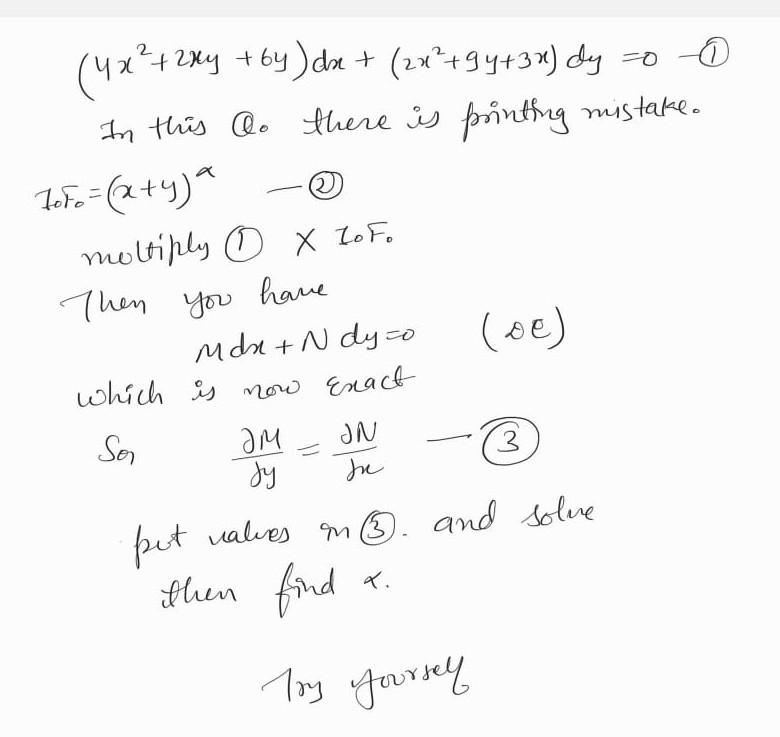 (4x²+2xy+6y)dx + (2x²+9y+3x)dy =0 —①
In this Q. there is printing mistake.
I.F. = (x+y)^α —②
moltiply ① X I.F.
Then you have
Mdx + N dy=0 (DE)
which is now Exact
So, ∂M/∂y = ∂N/∂x —③
put values in ③. and solve
then find α.
Try yourself